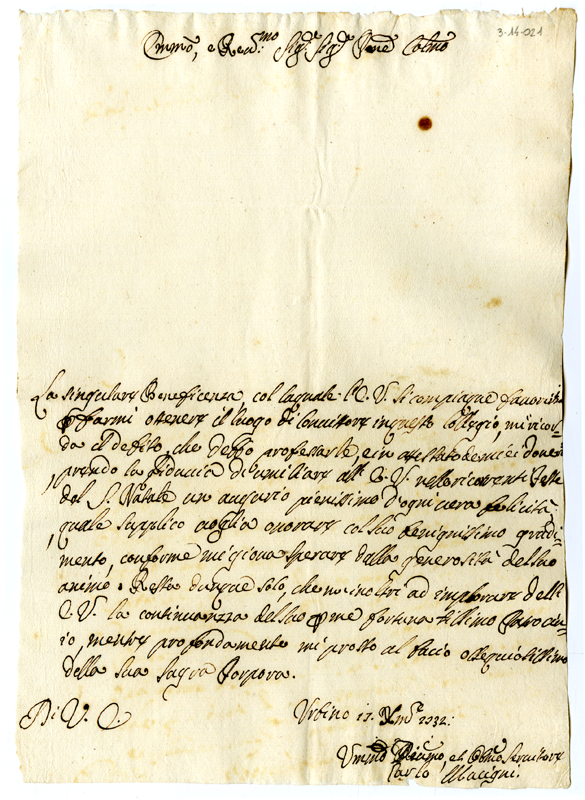 3-14-021
Emmo, e Rev: mo Sig.r Sig.r Prone Colmo
La singulare Beneficenza, col laquale l'E. V. si compiaque favorirmi
farmi ottenere il luogo di Convittore in questo Collegio, mi ricor-
da il debito, che deggio professarle, e in attestato de miei doveri
prendo la fiducia di umiliare all' E. V. nelle ricorrenti feste
del S. Natale un augurio pienissimo d'ogni vera felicità,
quale supplico voglia onorare col suo benignissimo gradi-
mento, conforme mi giova sperare dalla generosità del suo
animo. Resta dunque solo, che m'inoltri ad implorare dell'
E. V. la continuanza del suo per me fortunatissimo Patrocin-
io, mentre profondamente mi prostro al bacio ossequiosissimo
della sua Sagra Porpora.
Di V. E.
Urbino 17. Xmb.e 1732:
Umilmo Divmo, et Obmo Servitore
Carlo